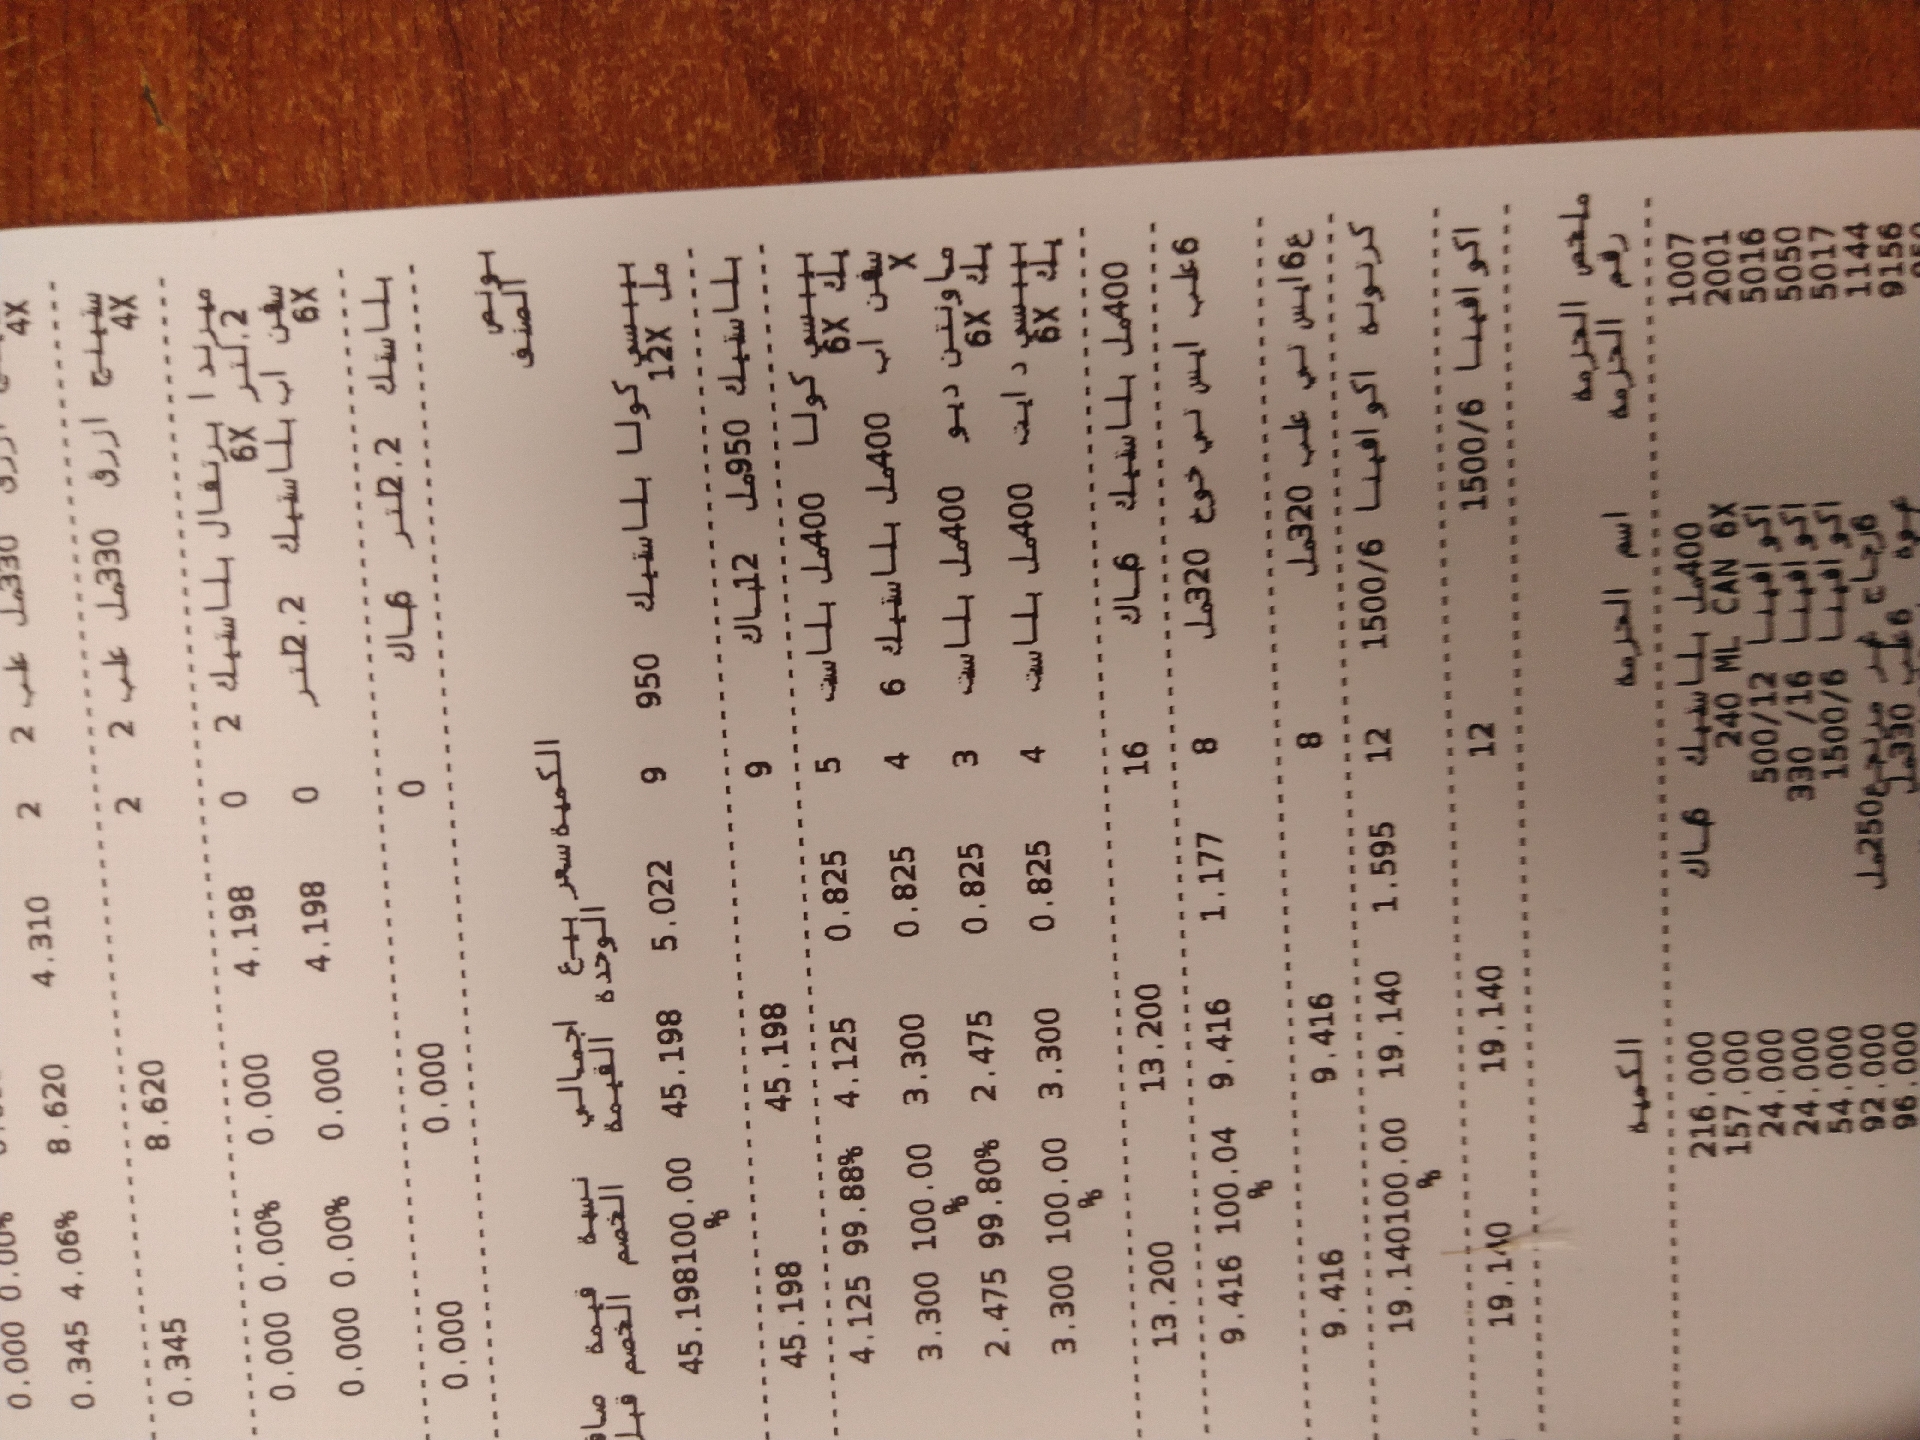 4X
0.000 0.00% 4.310 2 2 330مل علب
0.345 4.06% 8.620 2 2 سفينج ازرق 330مل علب
4X
0.345 8.620 2
0.000 0.00% 0.000 4.198 0 ميرندا برتقال بلاستيك 2
2.لتر 6X
0.000 0.00% 0.000 4.198 0 سفن اب بلاستيك 2.2لتر
6X
0.000 0.000 0 بلاستك 2.2لتر 6باك
بونص
الصنف الكمية سعر بيع اجمالي نسبة قيمة
الوحدة القيمة الخصم الخصم قبل
بيبسي كولا بلاستيك 950 9 5.022 45.198 100.00 45.198
مل 12X %
بلاستيك 950مل 12باك 9 45.198 45.198
بيبسي كولا 400مل بلاست 5 0.825 4.125 99.88% 4.125
يك 6X
سفن اب 400مل بلاستيك 6 4 0.825 3.300 100.00 3.300
X %
ماونتن ديو 400مل بلاست 3 0.825 2.475 99.80% 2.475
يك 6X
بيبسي دايت 400مل بلاست 4 0.825 3.300 100.00 3.300
يك 6X %
400مل بلاستيك 6باك 16 13.200 13.200
6علب ايس تي خوخ 320مل 8 1.177 9.416 100.04 9.416
%
ع6ايس تي علب 320مل 8 9.416 9.416
كرتونه اكوافينا 1500/6 12 1.595 19.140 100.00 19.140
%
اكوافينا 1500/6 12 19.140 19.140
ملخص الحزمة
رقم الحزمة اسم الحزمة الكمية
1007 400مل بلاستيك 6باك 216.000
2001 240 ML CAN 6X 157.000
5016 اكوافينا 500/12 24.000
5050 اكوافينا 330 /16 24.000
5017 اكوافينا 1500/6 54.000
1144 6زجاج غير مرتجع250مل 92.000
9156 6علب 330مل 96.000